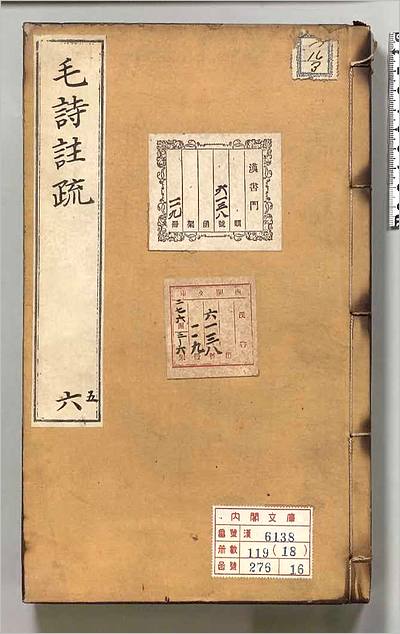 毛詩註疏
五
六
漢書門
類
六一三八
號
函
架
一一九
冊
漢書
六一三八
一一九
二七六
三一六
内閣文庫
番號 漢 6138
冊數 119(18)
函號 276 16